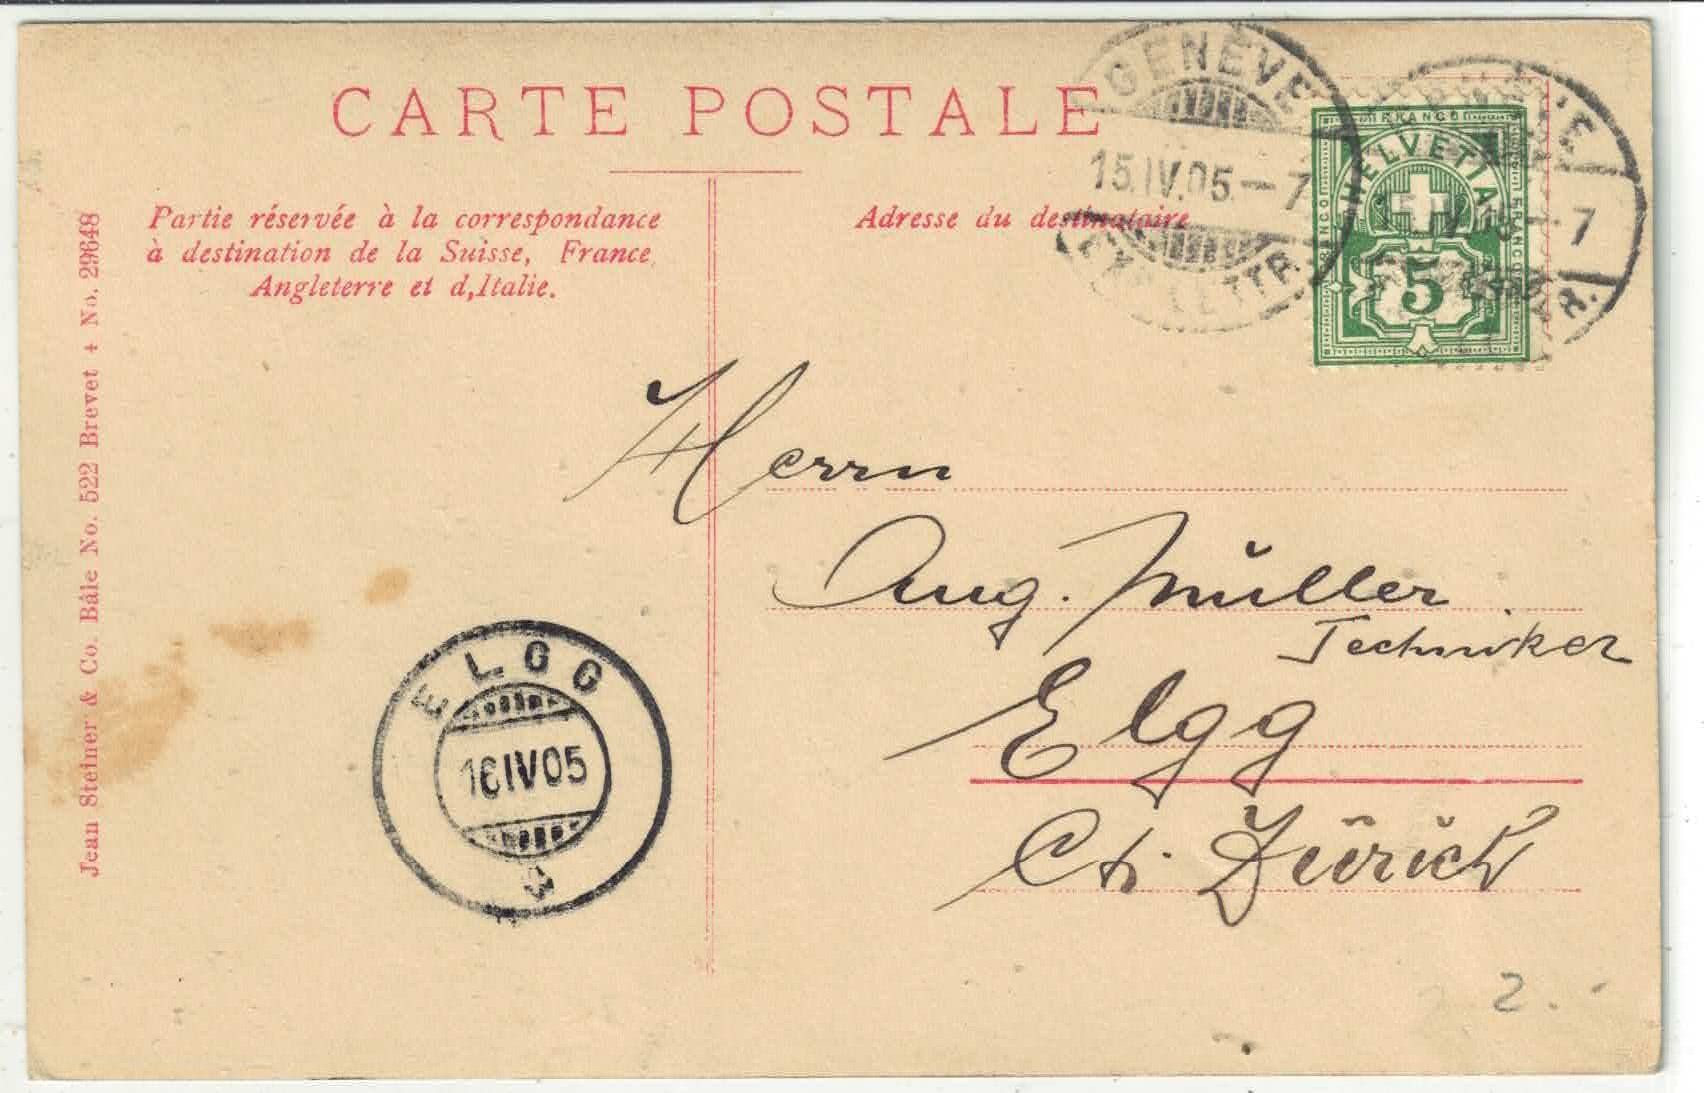 CARTE POSTALE
Partie réservée à la correspondance
à destination de la Suisse, France,
Angleterre et d,Italie.
Adresse du destinataire
Jean Steiner & Co. Bâle No. 522 Brevet + No. 29648
GENÈVE
15.IV.05.—7
EXP. LETTR.
FRANCO
HELVETIA
FRANCO
FRANCO
5
7
Herrn
Aug. Müller
Techniker
Elgg
Ct. Zürich
ELGG
16IV05
2.